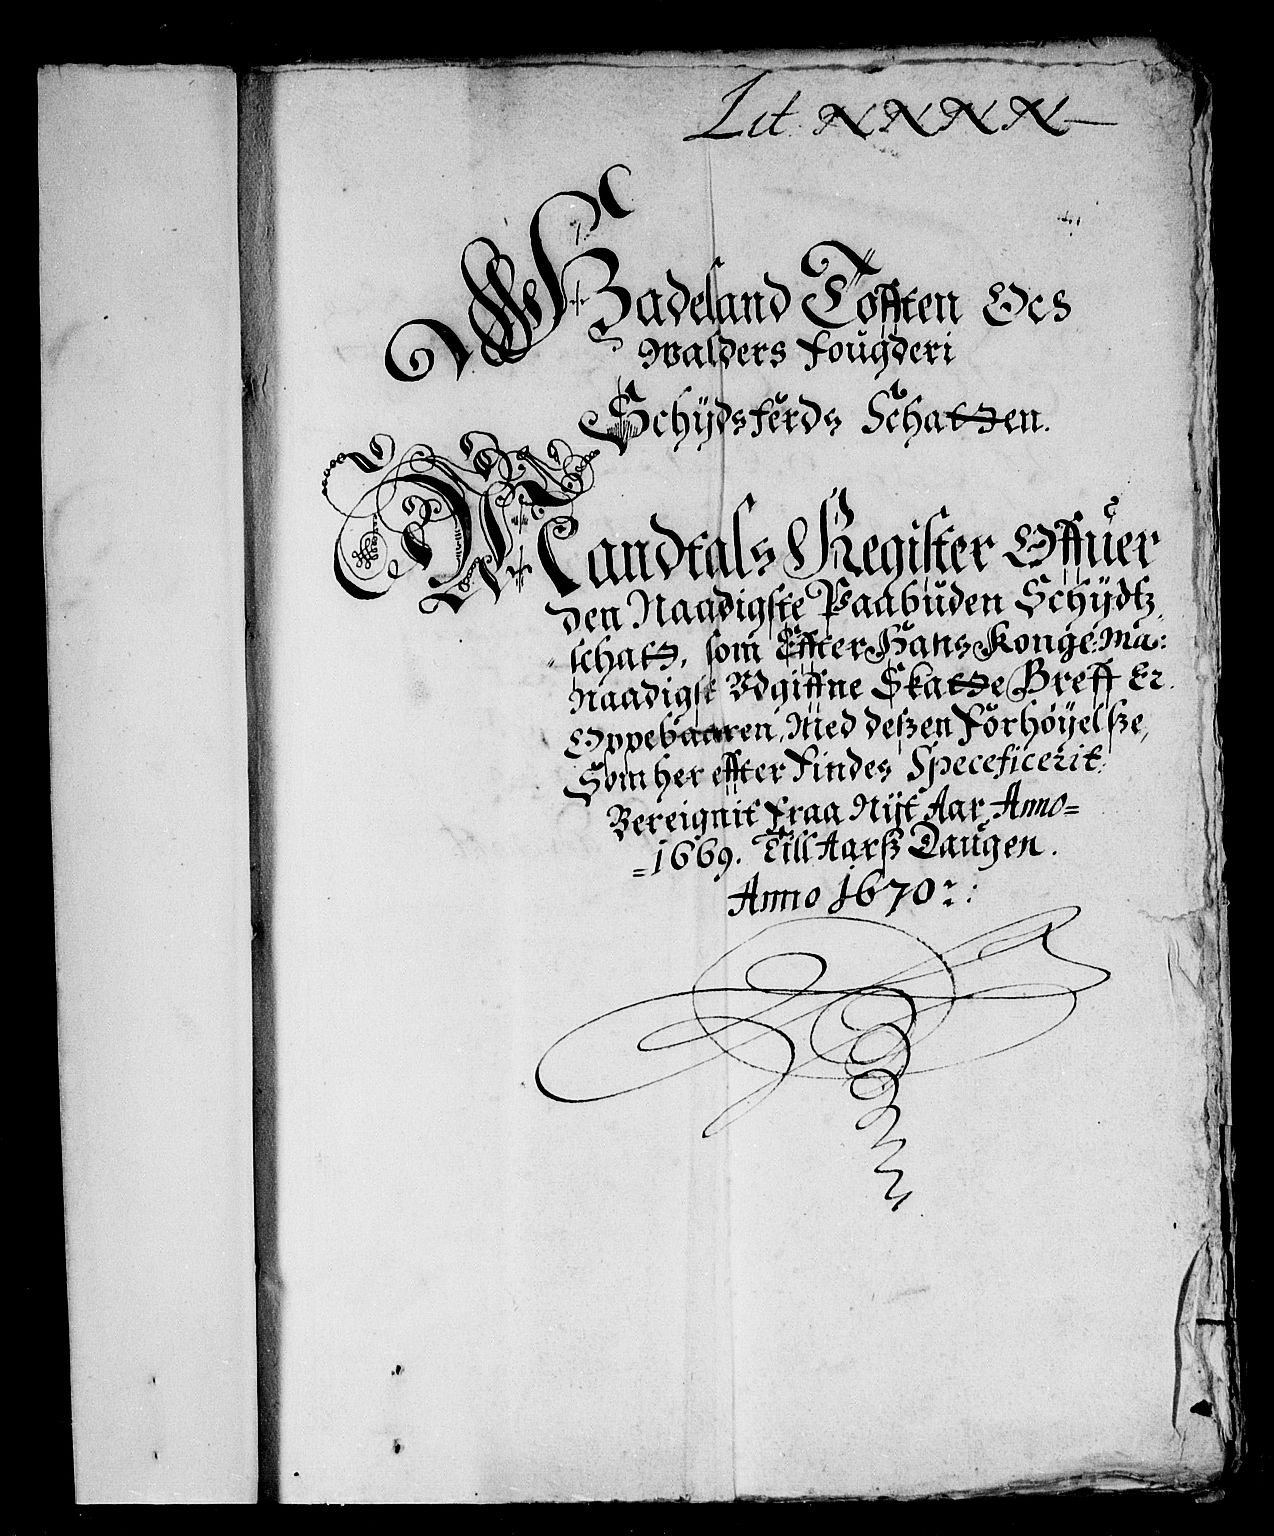 Lit: NNNN
Hadeland Tofften Ocs
Walders Fougderi
Schÿdsferds Schatzen.
Mandtals Register Offuer
den Naadigste Paabuden Schÿdtz
schatz, som Effter Hans Konge: Ma:
Naadigst Vdgiffne Skatze Breff Er
Oppebaaren, Med deszen Forhøÿelsze,
Som her effter Findes Speceficerit:
Bereignit fraa Nÿt Aar Anno=
=1669. Till Aarsz Daugen.
Anno 1670: